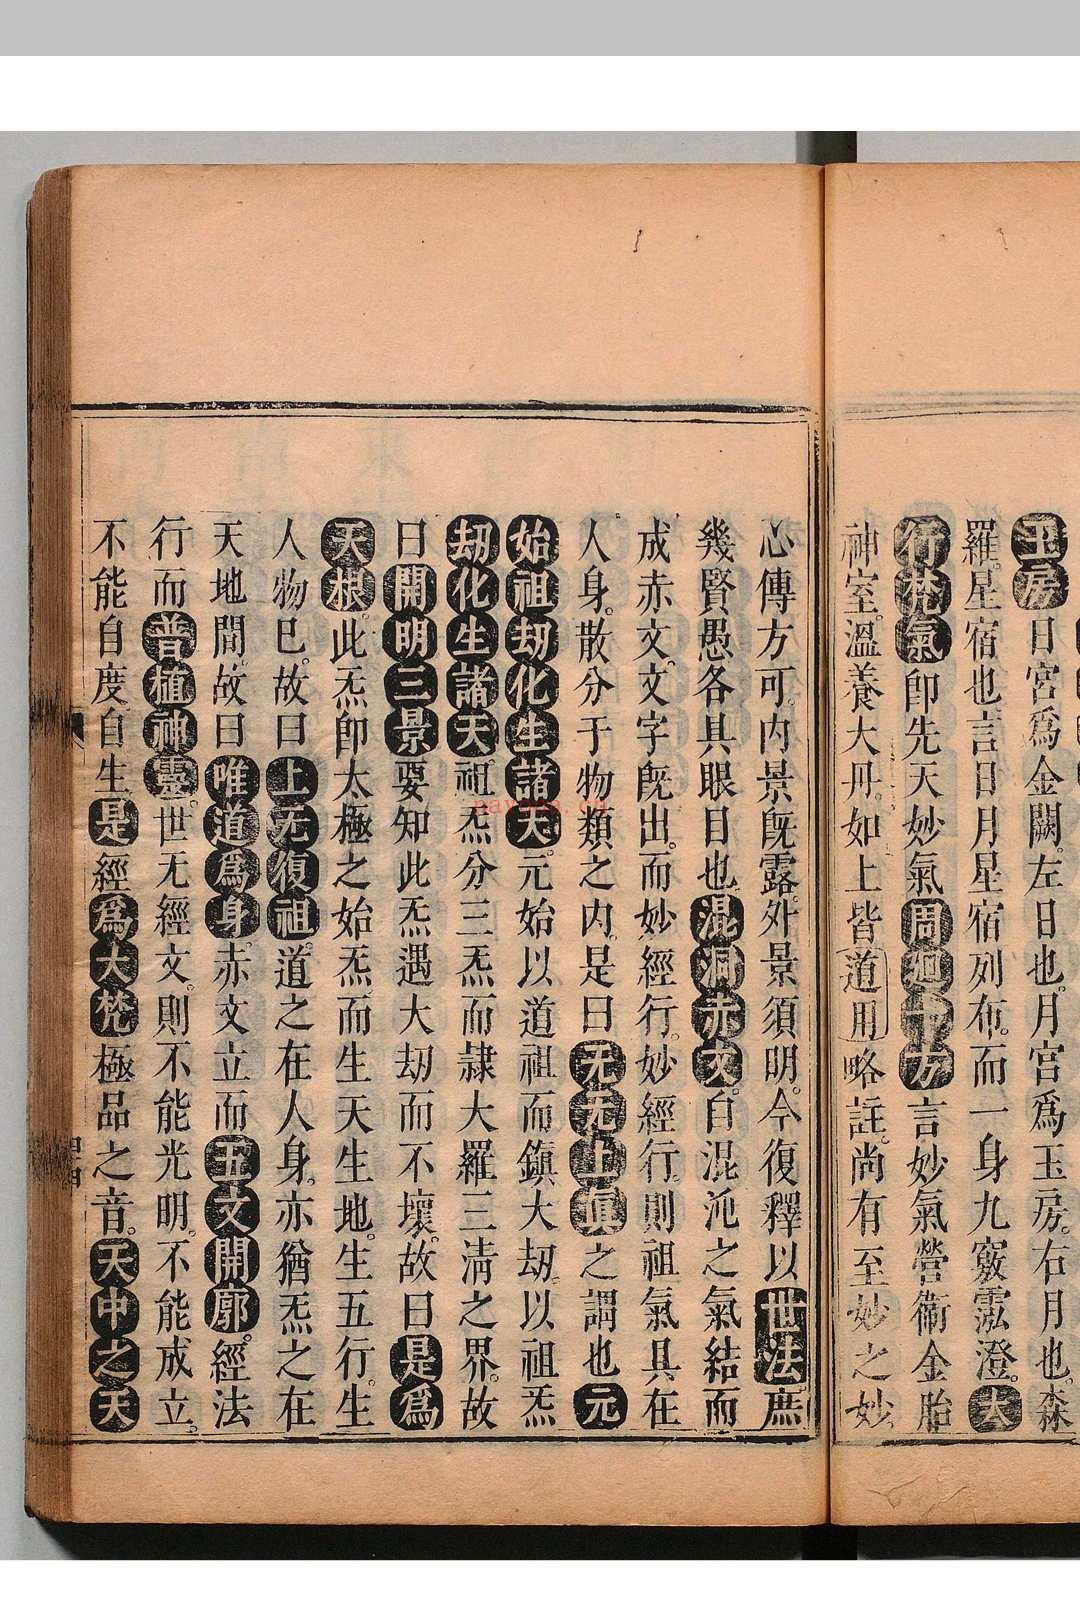 玉房日宮爲金闕左日也月宮爲玉房右月也森
羅星宿也言日月星宿列布而一身九竅霐澄大
行梵氣卽先天妙氣周廻十方言妙氣營衞金胎
神室溫養大丹如上皆道用略註尚有至妙之妙
心傳方可內景旣露外景須明今復釋以世法庶
幾賢愚各具眼目也混洞赤文自混沌之氣結而
成赤文文字旣出而妙經行妙經行則祖氣具在
人身散分于物類之內是曰无无上眞之謂也元
始祖劫化生諸天元始以道祖而鎭大劫以祖炁
劫化生諸天祖炁分三炁而隷大羅三淸之界故
曰開明三景要知此炁遇大劫而不壞故曰是爲
天根此炁卽太極之始炁而生天生地生五行生
人物巳故曰上无復祖道之在人身亦猶炁之在
天地間故曰唯道爲身赤文立而五文開廓經法
行而普植神靈世无經文則不能光明不能成立
不能自度自生是經爲大梵極品之音天中之天
四十四
nayona.cn